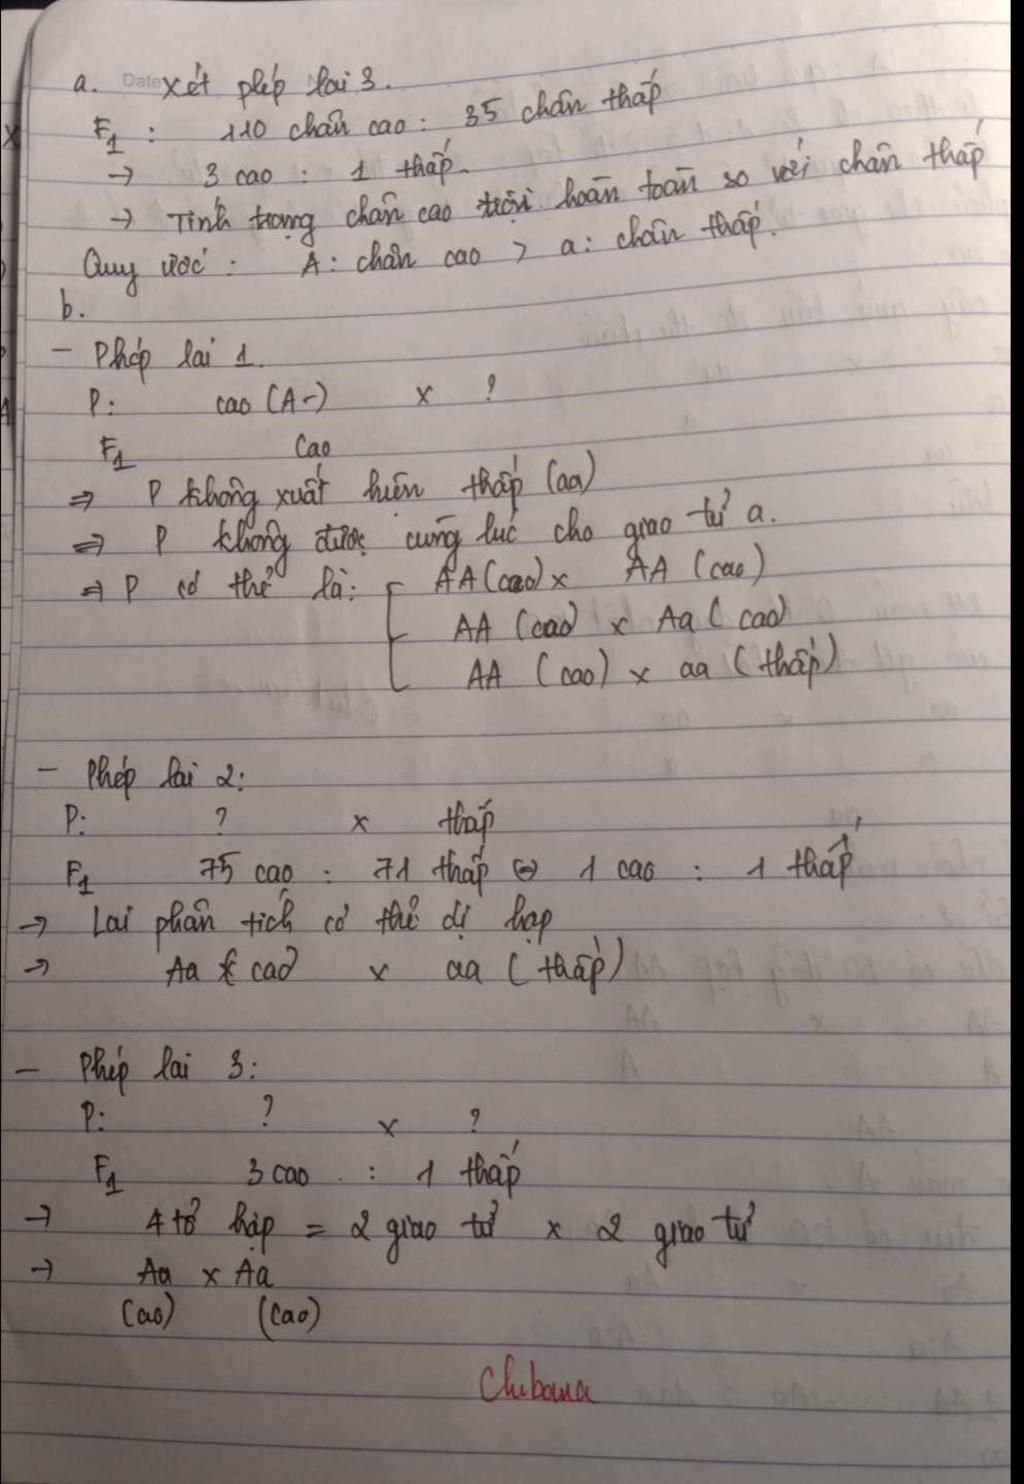 Date
a. xét phép lai 3.
F1 : 110 chân cao : 35 chân thấp
→ 3 cao : 1 thấp.
→ Tính trạng chân cao trội hoàn toàn so với chân thấp
Quy ước : A : chân cao > a : chân thấp.
b.
- Phép lai 1.
P: cao (A-) x ?
F1 Cao
⇒ P không xuất hiện thấp (aa)
⇒ P không được cùng lúc cho giao tử a.
⇒ P có thể là: AA (cao) x AA (cao)
AA (cao) x Aa (cao)
AA (cao) x aa (thấp)
- Phép lai 2:
P: ? x thấp
F1 75 cao : 71 thấp ⇔ 1 cao : 1 thấp
→ Lai phân tích cơ thể dị hợp
→ Aa (cao) x aa (thấp)
- Phép lai 3:
P: ? x ?
F1 3 cao : 1 thấp
→ 4 tổ hợp = 2 giao tử x 2 giao tử
→ Aa x Aa
(cao) (cao)